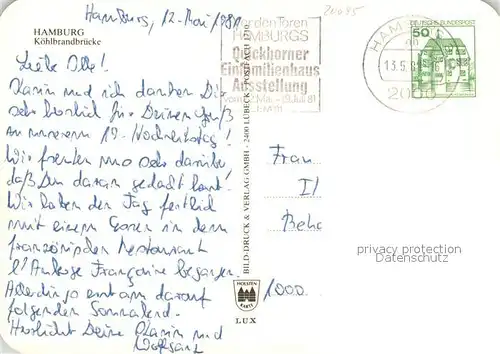 HAMBURG
Köhlbrandbrücke
Hamburg, 12. Mai 1981
Liebe Ilse!
Karin und ich danken Dir
sehr herzlich für Deinen Gruß
zu unserem 19. Hochzeitstag!
Wir freuten uns sehr darüber
daß Du daran gedacht hast!
Wir haben den Tag festlich
mit einem Essen in dem
französischen Restaurant
l'Auberge Française begangen.
Allerdings erst am darauf
folgenden Sonnabend.
Herzlichst Deine Karin und
Wolfgang
Vor den Toren
HAMBURGS
Quickborner
Einfamilienhaus
Ausstellung
BILD-DRUCK & VERLAG GMBH - 2400 LÜBECK - POSTFACH
HOLSTEN
KARTE
LUX
HAMBURG
13.5.81
2000
DEUTSCHE BUNDESPOST
50
Frau
I
Beh
1000
privacy protection
Datenschutz